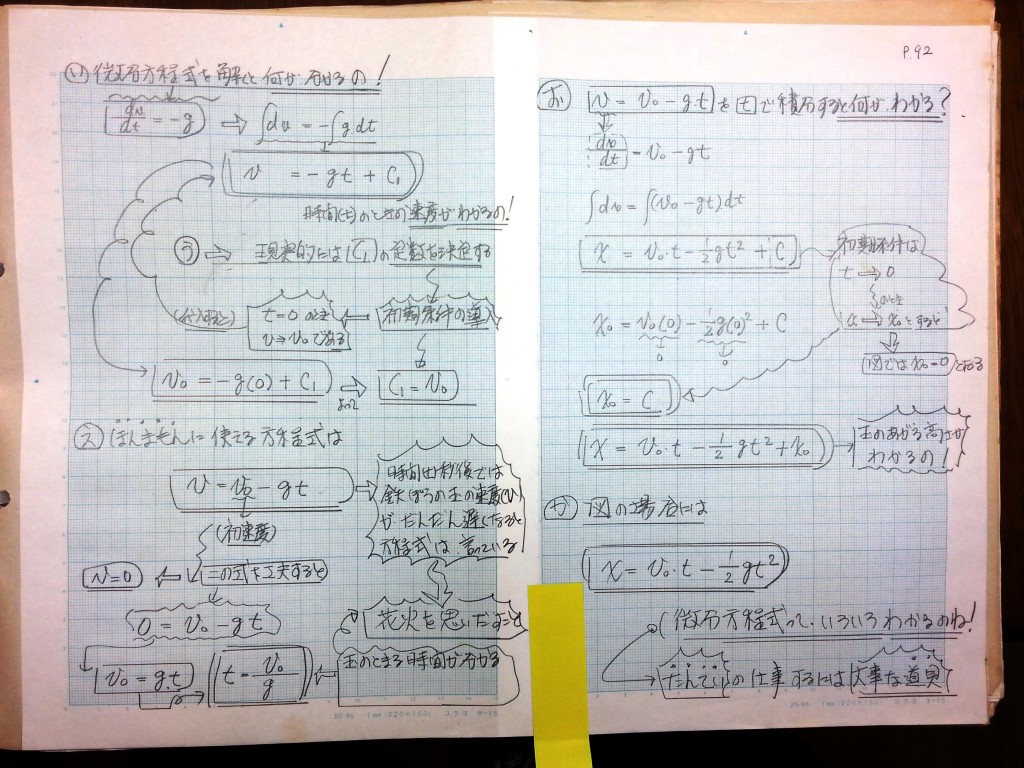 P.92
(い) 微分方程式を解くと何が分かるの!
dv/dt = -g ⇒ ∫dv = -∫g dt
v = -gt + C₁
時間(t)のときの速度がわかるの!
(う) ⇒ 現実的には C₁ の定数を決定する
初期条件の導入
t=0 のとき
v→v₀である
(代入すると)
v₀ = -g(0) + C₁ ⇒ C₁ = v₀
よって
(え) ほんまもんに使える方程式は
v = v₀ - gt
(初速度)
時間(t)秒後では
鉄ぽうの玉の速度(v)
がだんだん遅くなると
方程式は言っている
この式を工夫すると
v=0
花火を思いだすこと
0 = v₀ - gt
v₀ = g.t
t = v₀/g
玉のとまる時間が分かる
mm (220×150) コクヨ
(お) v = v₀ - g.t を t で積分すると何がわかる?
dv/dt = v₀ - gt
∫dv = ∫(v₀ - gt)dt
x = v₀.t - 1/2 gt² + C
初期条件は
t → 0
のとき
x → x₀とすると
図では x₀=0 となる
x₀ = v₀(0) - 1/2 g(0)² + C
0 0
x₀ = C
x = v₀.t - 1/2 gt² + x₀
玉のあがる高さが
わかるの!
(か) 図の場合には
x = v₀.t - 1/2 gt²
(微分方程式って、いろいろわかるのね!
たんていの仕事するには大事な道具
mm (220×150) コクヨ